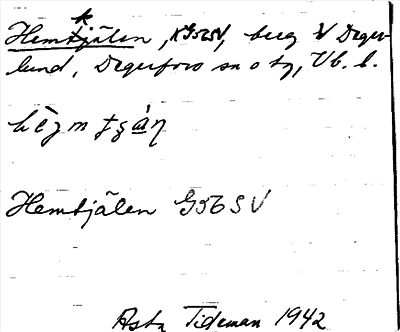 k
Hemtjälen, XG56SV, berg V Deger-
lund, Degerfors sn o tg, Vb. l.
Hemtjälen G56SV
Asta Tideman 1942